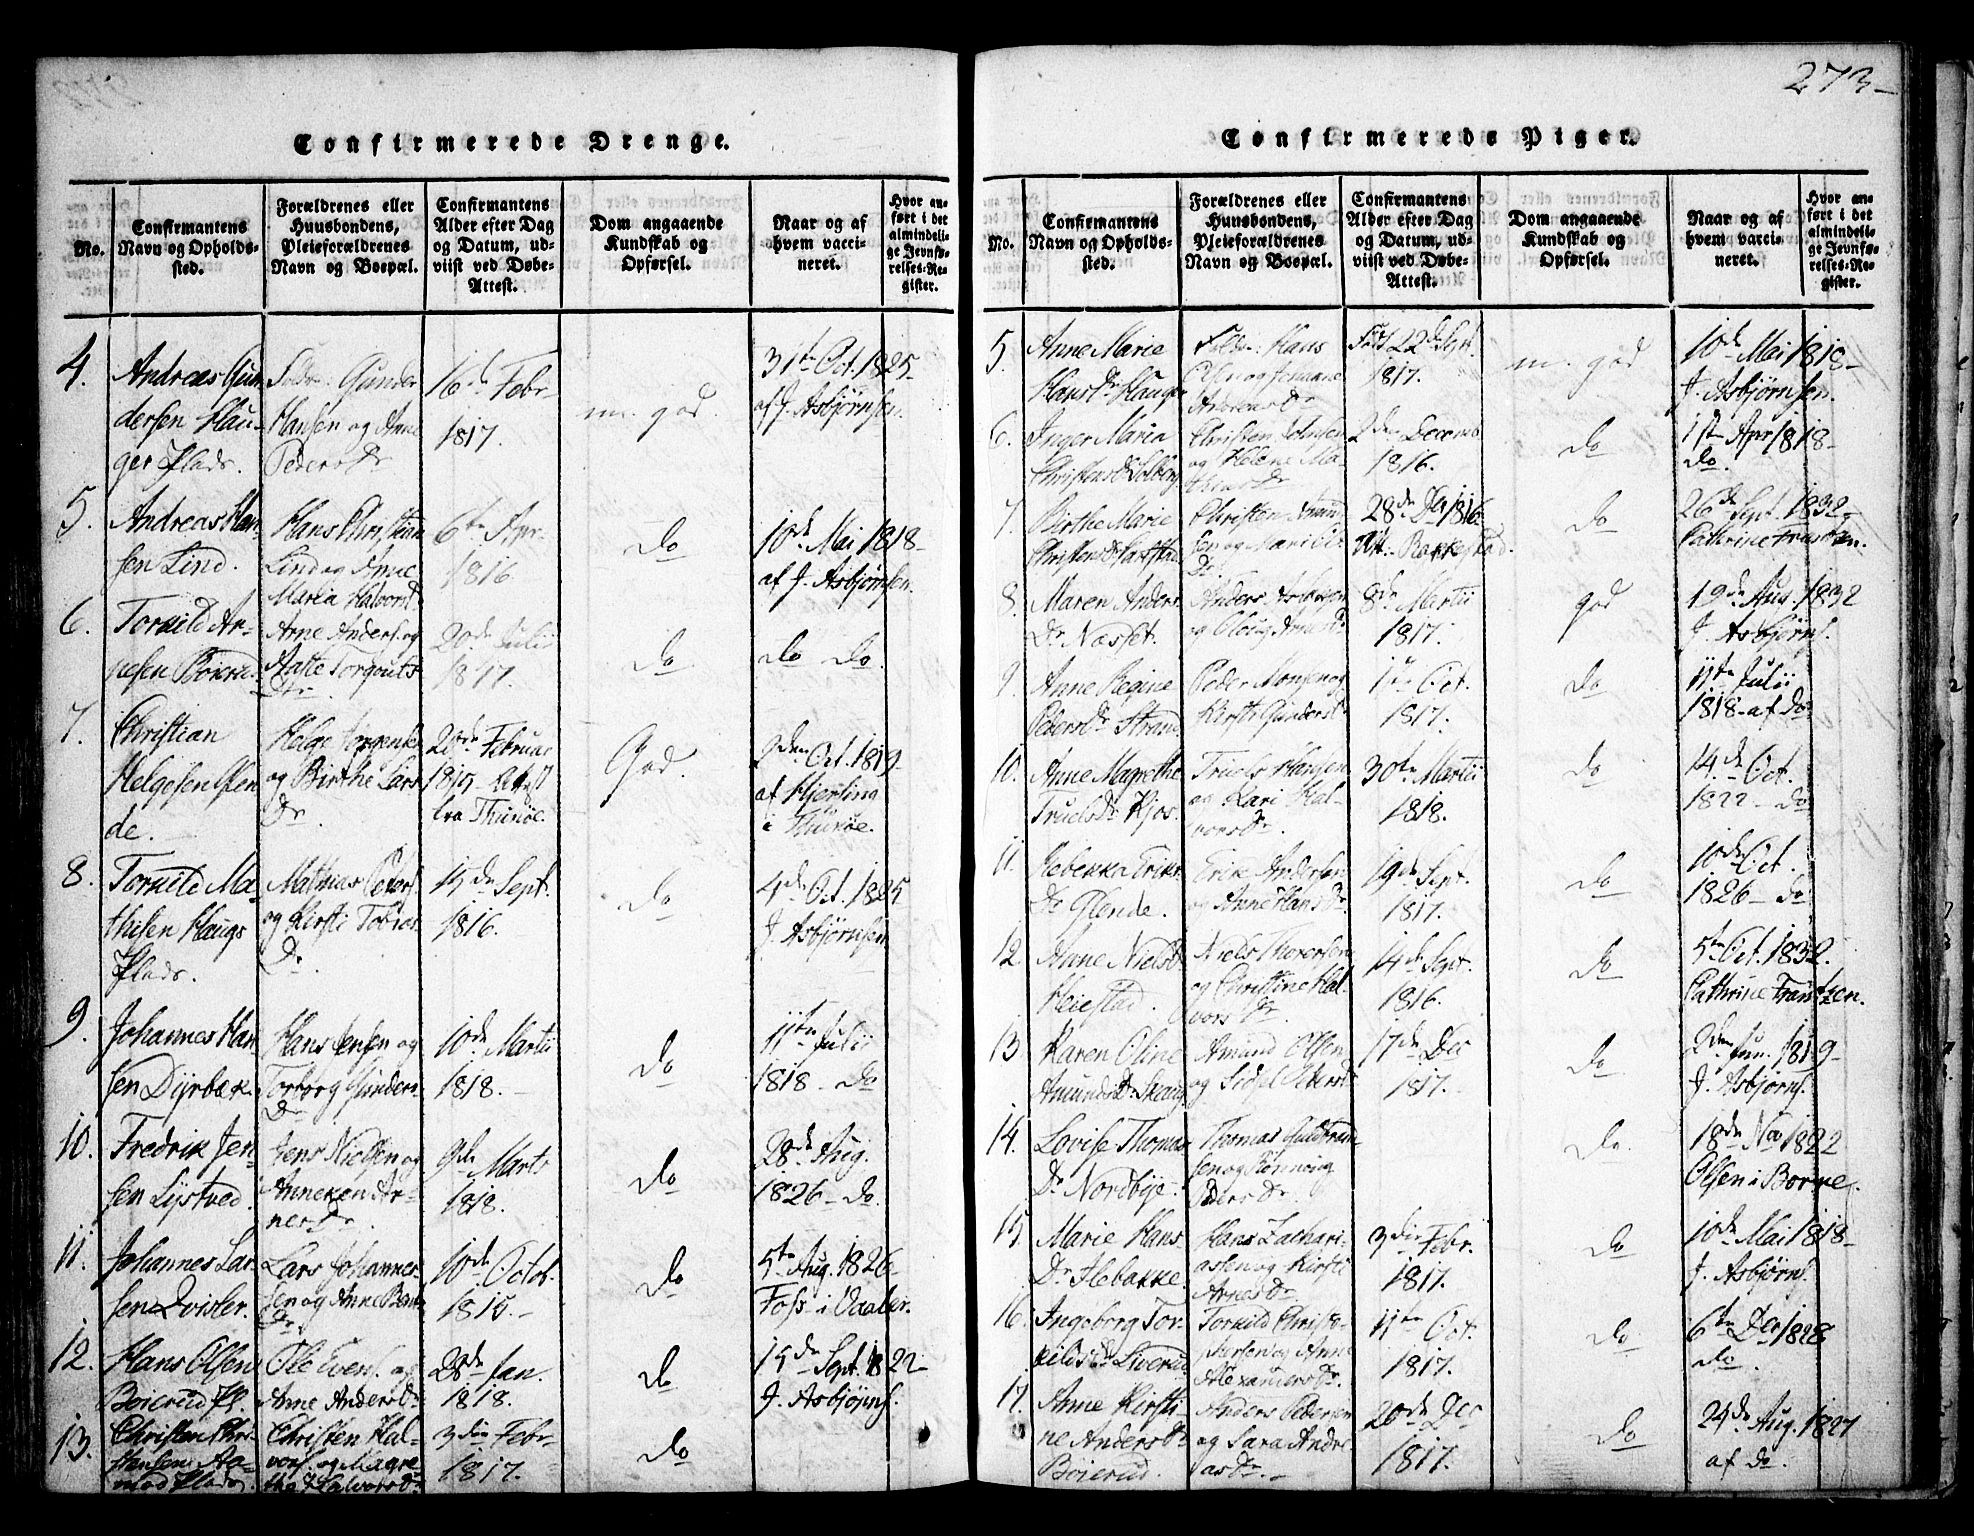 273
Confirmerede Drenge.
No.
Confirmantens
Navn og Opholds-
sted.
Forældrenes eller
Huusbondens,
Pleieforældrenes
Navn og Boepæl.
Confirmantens
Alder efter Dag
og Datum, ud-
viist ved Døbe-
Attest.
Dom angaaende
Kundskab og
Opførsel.
Naar og af
hvem vacci-
neret.
Hvor an-
ført i det
almindeli-
ge Jevnfø-
relses-Re-
gister.
4.
Andreas Gun
dersen Hau-
ger Plads.
Gunder
Hansen og Anne
Peders Dr
16de Febr
1817.
m. god.
31te Oct. 1825
af J. Asbjørnsen.
5.
Andreas Han
sen Lind.
Hans Christian
Lind og Anne
Maria Halvorsd
6te Apr.
1816.
do
10de Mai 1818
af J. Asbjørnsen.
6.
Torkild Ar-
nesen
Arne Anders. og
20de Julii
1817.
do
do do
7.
Christian
Helgesen Glen
de.
Helge
og Birthe Lars
Dr
28de Februar
1815
fra Thunøe.
God.
2den Oct. 1819
af Hjerting
i Thunøe.
8.
Torkild Ma
thisen Haugs
Plads.
Mathias Peders
og Kirsti Tobias
Dr
15de Sept.
1816.
do
4de Oct. 1825
J. Asbjørnsen
9.
Johannes Han
sen Dyrbæk
Hans Jensen og
Torborg Gunders
Dr
10de Martii
1818.
do
11te Julii
1818 do
10.
Fredrik Jen-
sen Lystved.
Jens Nielsen og
Anneken Ar-
ners Dr
9de Marts
1818.
do
28de Aug.
1826 do
11.
Johannes Lar-
sen Qvisler.
Lars Johannes-
sen og Anne
Dr
10de Octob.
1815.
do
5te Aug. 1826
Foss i Vaaler.
12.
Hans Olsen
Boierud Pl.
Ole Evens. og
Anne Anders Dr
28de Jan.
1818.
do
15de Sept. 1822
J. Asbjørns.
13.
Christen Chri-
stensen Aa-
mod Plads.
Christen Hal-
vors. og Magre-
the Halvors Dr
3die Febr
1817.
do
Confirmerede Piger.
No.
Confirmantens
Navn og Opholds-
sted.
Forældrenes eller
Huusbondens,
Pleieforældrenes
Navn og Boepæl.
Confirmantens
Alder efter Dag
og Datum, ud-
viist ved Døbe-
Attest.
Dom angaaende
Kundskab og
Opførsel.
Naar og af
hvem vacci-
neret.
Hvor an-
ført i det
almindeli-
ge Jevnfø-
relses-Re-
gister.
5.
Anne Marie
Hans Dr Hauger
Hans
Andreas Dr
Født 22de Sept.
1817.
m. god
10de Mai 1818
J. Asbjørnsen.
6.
Inger Maria
Christens Dr Solberg
Christen Johnsen
og Helene Ma-
thias Dr
2den Decemb
1816.
do
1ste Apr 1818
do.
7.
Birthe Marie
Christens Dr
Christen Amund
sen og Mari
Dr
28de Dec 1816
Att. Rakkestad.
do
26de Sept. 1832
Cathrine Frantzen.
8.
Maren Anders
Dr Næsset.
Anders
og
8de Martii
1817.
god
19de Aug. 1832
J. Asbjørns.
9.
Anne Regine
Peders Dr Strand
Peder Monsen og
Kirsti Gunders Dr
1ste Oct.
1817.
do
11te Julii
1818 af do
10.
Anne Magrethe
Truels Dr Kjos.
Truels Hansen
og Kari Hal-
vors Dr
30te Martii
1818.
do
14de Oct.
1822 do
11.
Rebekka Eriks
Dr Glende.
Erik Andersen
og Anne Hans Dr
19de Sept.
1817.
do
10de Oct.
1826 do
12.
Anne Niels Dr
Heiestad.
Niels Thoresen
og Christine Hal
vors Dr
14de Sept.
1816.
do
5te Oct. 1832.
Cathrine Frantzen.
13
Karen Oline
Amunds Dr Skaug
Amund Olsen
og Sidsel Peders Dr
17de Dec
1817.
do
2den Jun. 1819
J. Asbjørns.
14.
Lovise Thomas
Dr Nordbye.
Thomas Guldbran
sen og Rønnoug
Peders Dr
do.
18de Nov 1822
Olsen i Borge.
15.
Marie Hans
Dr Flebakke
Hans Zachari-
asen og Kirsti
Arnes Dr
3die Febr.
1817.
do
10de Mai 1818
J. Asbjørns.
16.
Ingeborg Tor-
kilds Dr Liverud
Torkild Christo-
phersen og Anne
Alexanders Dr
11te Oct.
1817.
do
6te Dec 1828
do.
17.
Anne Kirsti-
ne Anders Dr
Böierud.
Anders Pedersen
og Sara Andre
as Dr
20de Dec
1817.
do
24de Aug. 1827
af do.